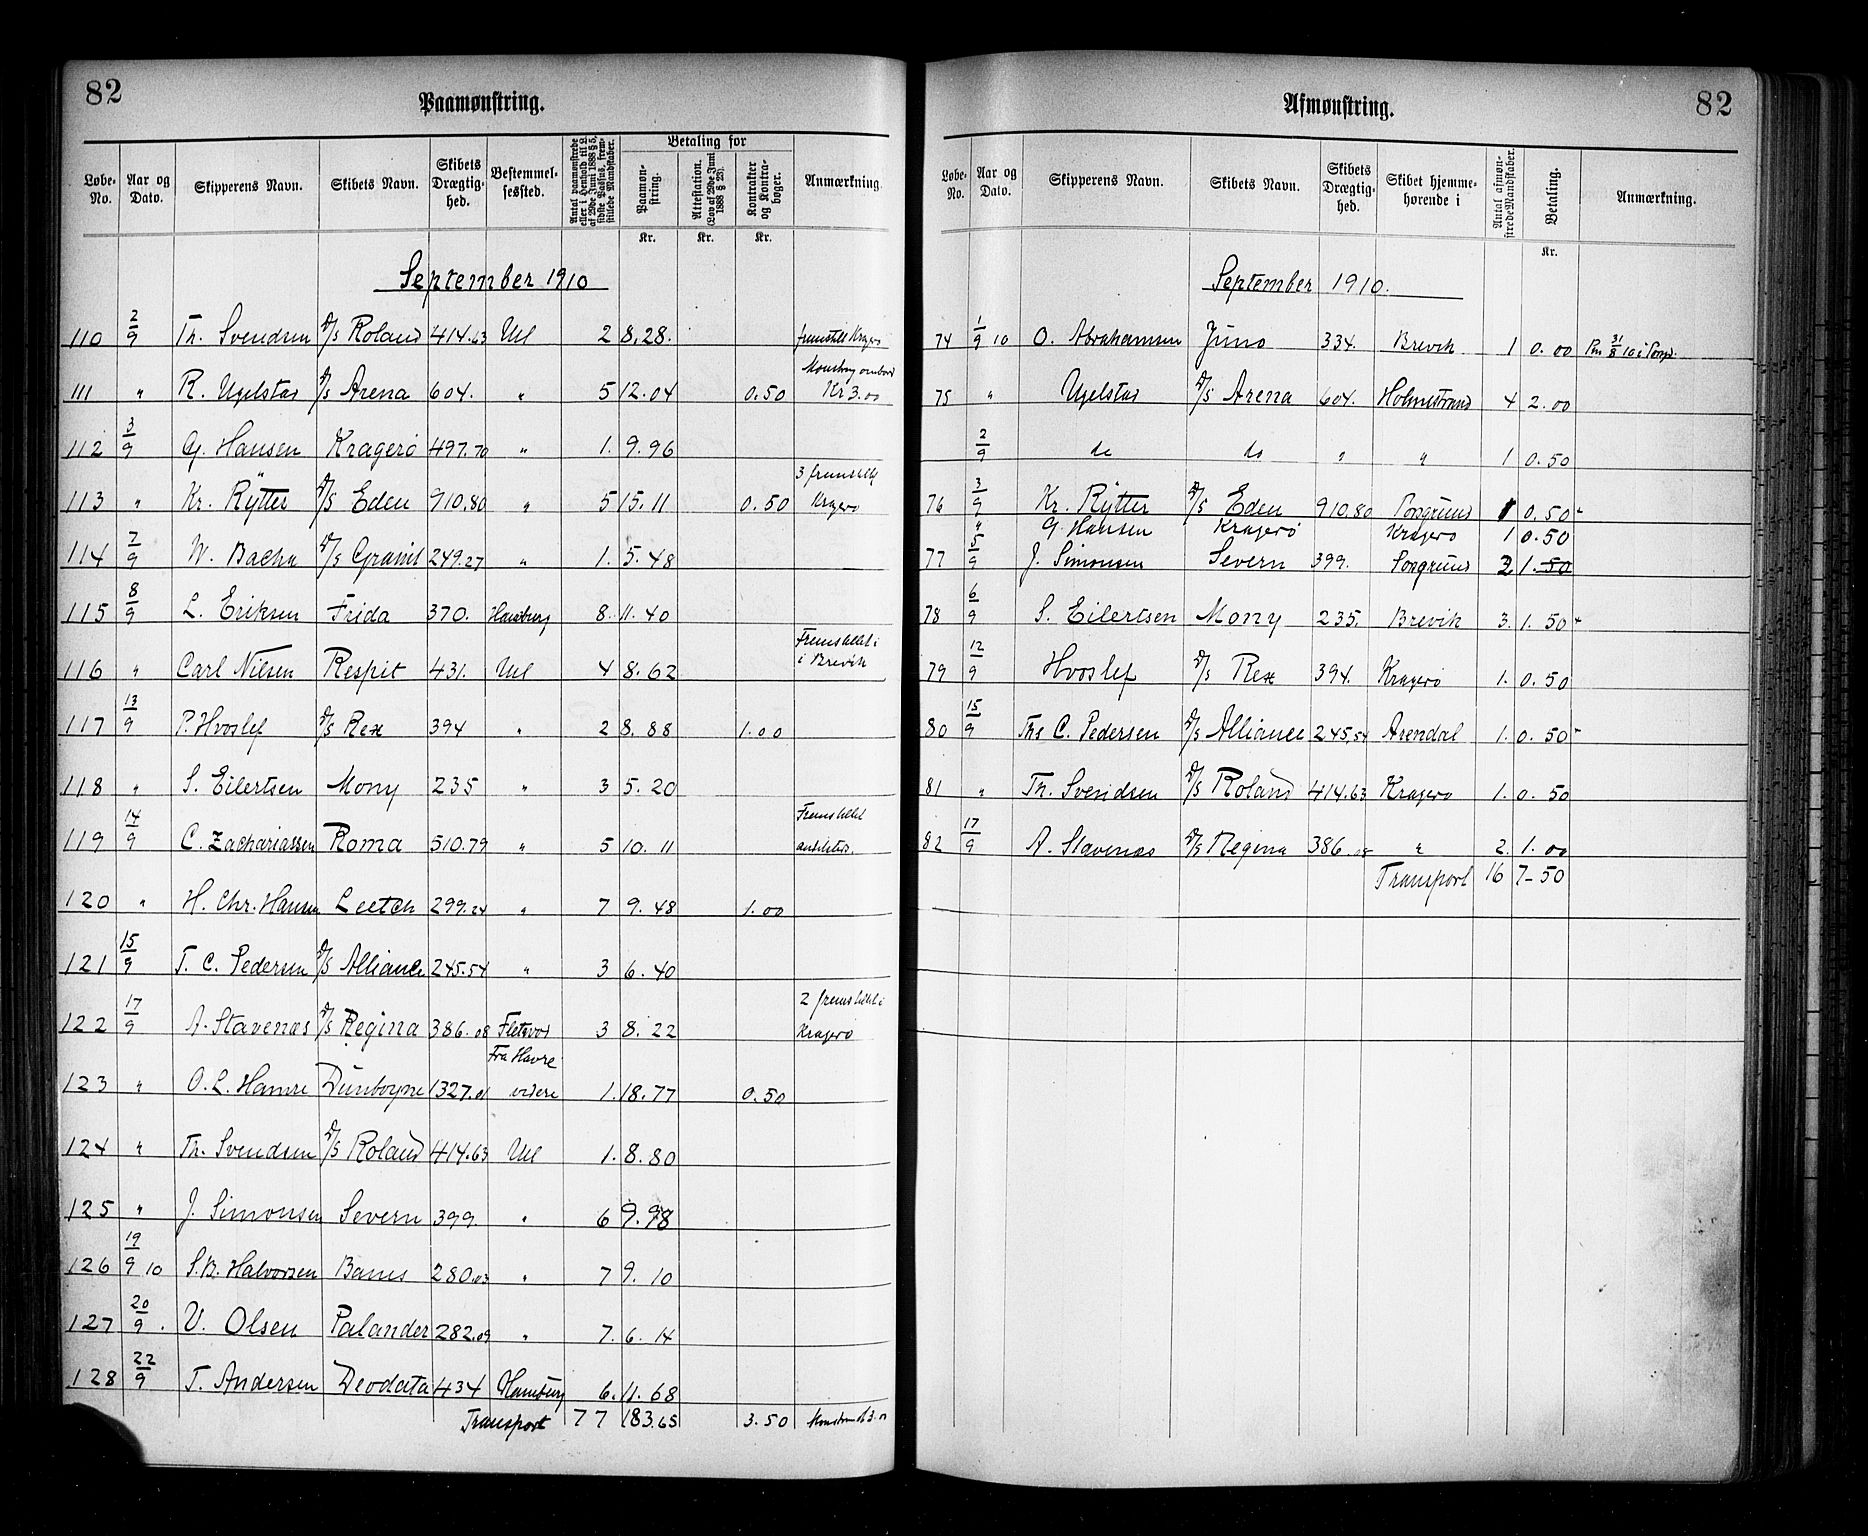 82
Paamønstring.
Løbe-No. Aar og Dato. Skipperens Navn. Skibets Navn. Skibets Drægtighed. Bestemmelsessted. Antal paamønstrede eller i Henhold til L. af 29de Juni 1888 § 5, sidste Passus, fremstillede Mandskaber. Betaling for Paamønstring. Attestation. (Lov af 29de Juni 1888 § 23). Kontrakter og Kontrabøger. Anmærkning.
Kr. Kr. Kr.
September 1910
110 2/9 Th. Svendsen D/S Roland 414.63 Udl 2 8.28. fremstill Kragerø
111 " R. Ugelstad D/S Arena 604. " 5 12.04 0.50 Mønstring ombord Kr 3.00
112 3/9 G. Hansen Kragerø 497.70 " 1. 9.96
113 " Kr. Rÿtter D/S Eden 910.80 " 5 15.11 0.50 3 fremstillet Kragerø
114 7/9 W. Bache D/S Granit 249.27 " 1. 5.48
115 8/9 L. Eriksen Frida 370. Hamburg 8. 11.40
116 " Carl Nilsen Respit 431. Udl 4 8.62 Fremstillet i i Brevik
117 13/9 P. Hvoslef D/S Rex 394 " 2 8.88 1.00
118 " S. Eilertsen Mony 235 " 3 5.20
119 14/9 C. Zachariassen Roma 510.79 " 5 10.11 Fremstillet
120 " H. Chr. Hansen Leetch 299.24 " 7 9.48 1.00
121 15/9 T. C. Pedersen D/S Alliance 245.54 " 3 6.40
122 17/9 A. Stavenæs D/S Regina 386.08 3 8.22 2 fremstillet i Kragerø
123 " O. L. Hamre Dunboyne 1327.01 Fra Havre videre 1. 18.77 0.50
124 " Th. Svendsen D/S Roland 414.63 Udl 1. 8.80
125 " J. Simonsen Severn 399. " 6 9.98
126 19/9 10 S. B. Halvorsen 280.03 " 7 9.10
127 20/9. V. Olsen Palander 282.09 " 7. 6.14
128 22/9 T. Andersen Deodata 434 Hamburg 6. 11.68
Transport 77 183.65 3.50
Afmønstring.
82
Løbe-No. Aar og Dato. Skipperens Navn. Skibets Navn. Skibets Drægtighed. Skibet hjemmehørende i Antal afmønstrede Mandskaber. Betaling. Anmærkning.
Kr.
September 1910.
74 1/9 10 O. Abrahamsen Juno 334. Brevik 1 0.00
75 " Ugelstad D/S Arena 604. Holmestrand 4 2.00
2/9 do do " " 1 0.50
76 3/9 Kr. Rÿtter D/S Eden 910.80 Porsgrund 1 0.50
" G. Hansen Kragerø Kragerø 1 0.50
77 5/9 J. Simonsen Severn 399. Porsgrund 1.50
78 6/9 S. Eilertsen Mony 235. Brevik 3. 1.50
79 12/9 Hvoslef D/S Rex 394. Kragerø 1. 0.50
80 15/9 Ths C. Pedersen D/S Alliance 245.54 Arendal 1. 0.50
81 " Th. Svendsen D/S Roland 414.63 Kragerø 1. 0.50
82 17/9 A. Stavenæs D/S Regina 386.08 " 2. 1.00
Transport 16 7-50